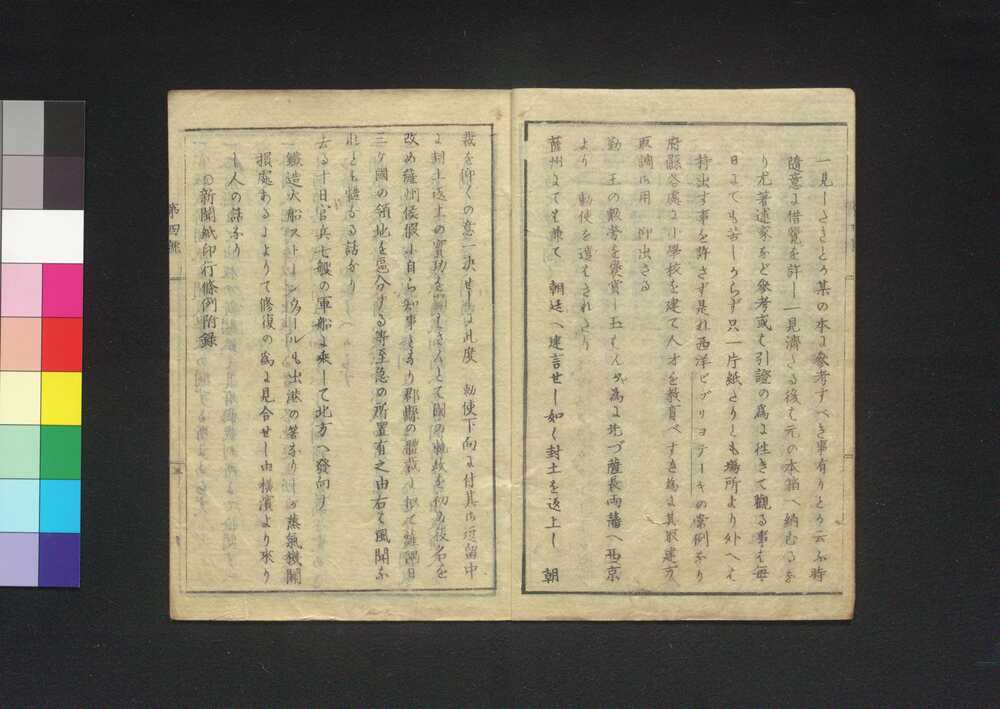 一見しさきとか某の本に參考すべき事有りとか云ふ時
隨意に借覽を許し一見濟たる後は元の本箱へ納むるを
り尤著述家など參考或は引證の爲に往きて觀る事は毎
日にても苦しからず只一片紙たりとも場所より外へは
持出す事を許さず是れ西洋ビブリヨテーキの常例なり
府縣各處に小學校を建て人才を教育べすき爲に其取建方
取調御用 仰出さる
勤 王の數者を褒賞し玉はんが爲に先づ薩長兩藩へ西京
より 勅使を遣はされたり
薩州にても兼て 朝廷へ建言せし如く封土を返上し 朝
裁を仰くの意一決せしに此度 勅使下向に付其御逗留中
に封土返上の實功を
改め薩州侯假に自ら知事となり郡縣の體裁に
三ケ國の領地を區分する等至急の所置有之由右は風聞な
れとも慥なる話なり
去る十日官兵七艘の軍船に乘して北方へ發向す
一鐵造大船ストーンウヲールも出港の筈なりしが蒸氣機關
損處あるによりて修復の爲に見合せし由横濱より來り
し人の話なり
○新聞紙印行條例附録
第四號